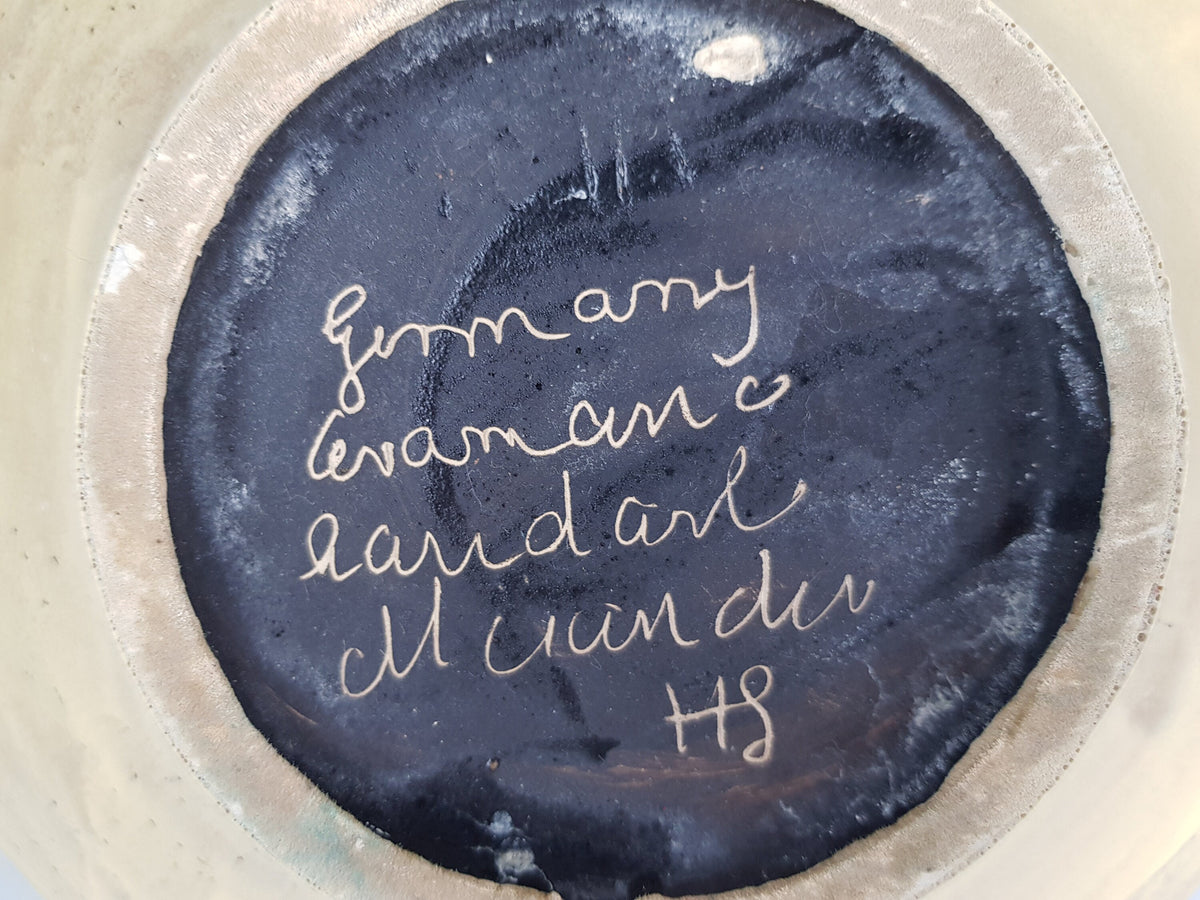 Germany
Ceramano
handarb
Mäander
HS